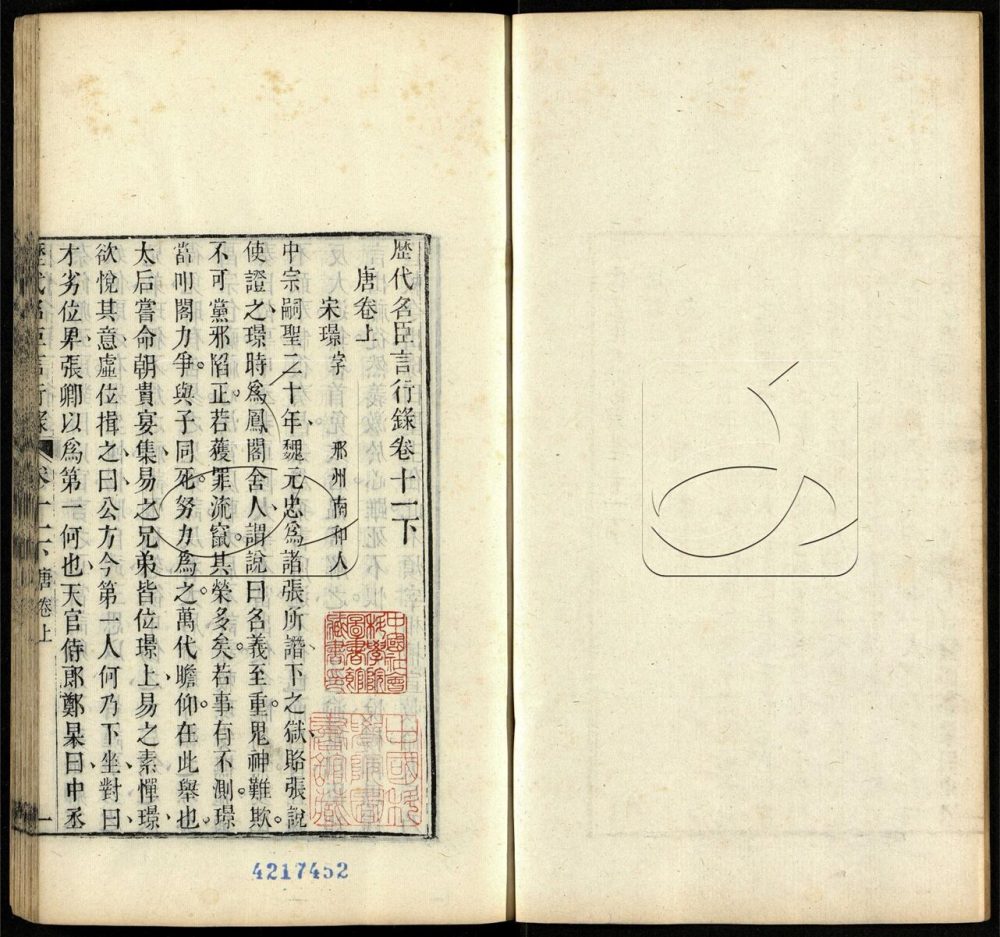 歷代名臣言行錄卷十二下
唐卷上
宋璟字 邢州南和人
中宗嗣聖二十年魏元忠爲諸張所譖下之獄賂張說
使證之璟時爲鳳閣舍人謂說曰名義至重鬼神難欺
不可黨邪陷正若獲罪流竄其榮多矣若事有不測璟
當叩閣力爭與子同死努力爲之萬代瞻仰在此舉也
太后嘗命朝貴宴集易之兄弟皆位璟上易之素憚璟
欲悅其意虛位揖之曰公方今第一人何乃下坐對曰
才劣位卑張卿以爲第一何也天官侍郎鄭杲曰中丞
歷代名臣言行錄 卷十二下唐卷上 一
中國社會科學院圖書館藏書印
4217452